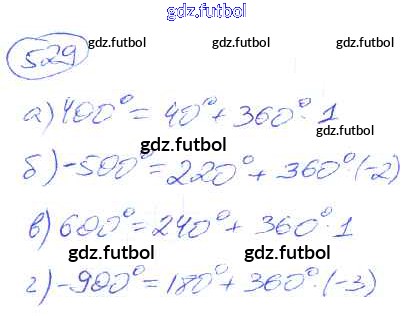 gdz.futbol
529
gdz.futbol gdz.futbol gdz.futbol
а) 400° = 40° + 360° · 1
gdz.futbol
gdz.futbol
б) -500° = 220° + 360° · (-2)
gdz.futbol
в) 600° = 240° + 360° · 1
gdz.futbol gdz.futbol
г) -900° = 180° + 360° · (-3)
gdz.futbol gdz.futbol